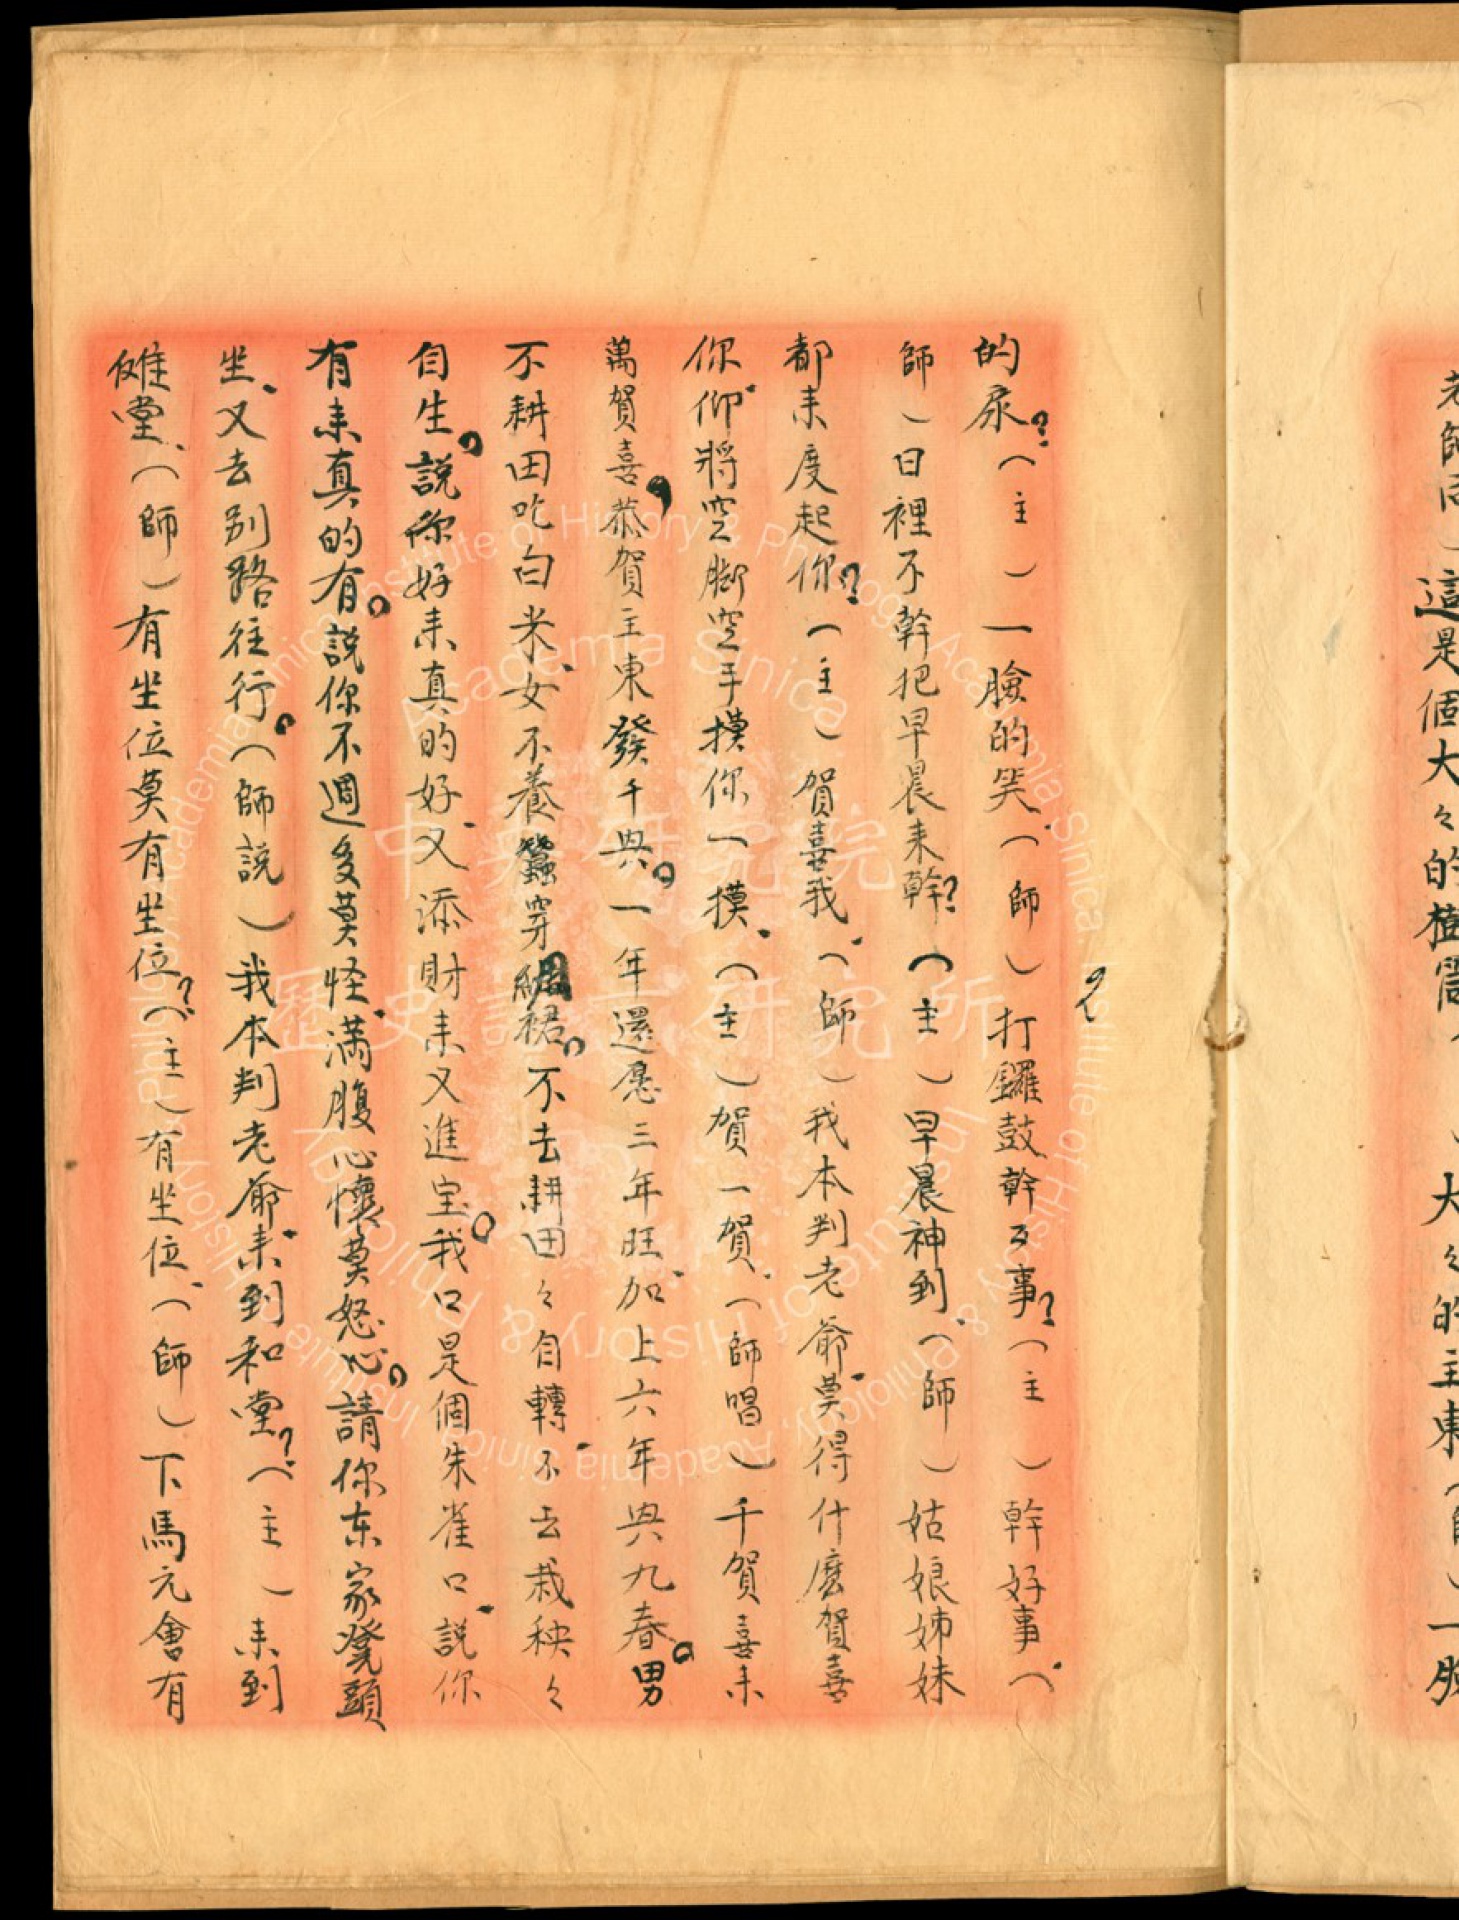 老師同）這是個大々的植　大々的主東（師）一臉
的尿？（主）一臉的笑、（師）打鑼鼓幹歹事？（主）幹好事、（
師）日裡不幹把早晨來幹？（主）早晨神到、（師）姑娘姊妹
都來度起你？（主）賀喜我、（師）我本判老爺、莫得什麽賀喜
你、仰將空腳空手摸你一摸、（主）賀一賀、（師唱）千賀喜來
萬賀喜，恭賀主東發千兴。一年還愿三年旺、加上六年兴九春。男
不耕田吃白米、女不養蠶穿裙。不去耕田々自轉、不去栽秧々
自生。説你好來真的好、又添財來又進宝。我口是個朱雀口、説你
有来真的有。説你不週多莫怪、满腹心懷莫怒心。請你东家凳頭
坐、又去别路往行。（師説）我本判老爺、来到和堂？（主）来到
傩堂、（師）有坐位莫有坐位？（主）有坐位、（師）下馬元會有
2
中央研究院
歷史語言研究所
Institute of History & Philology, Academia Sinica